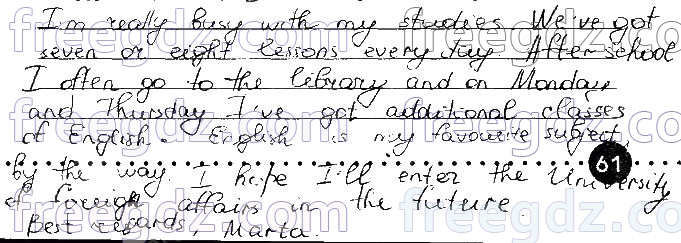 I'm really busy with my studies. We've got
seven or eight lessons every day. After school
I often go to the library and on Monday
and Thursday I've got additional classes
of English. English is my favourite subject,
61
by the way. I hope I'll enter the University
of foreign affairs in the future.
Best regards, Marta.